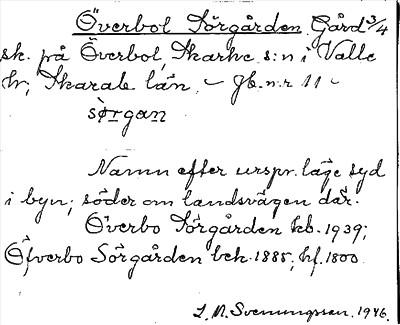 Överbol Sörgården Gård 3/4
sk. på Överbol, Skarke s:n i Valle
hd; Skarab. län, – Jb. n:r 11 –
sörgan
Namn efter urspr. läge syd
i byn; söder om landsvägen där.
Överbo Sörgården kb. 1939;
Öfverbo Sörgården bek. 1885, hf. 1800.
L. M. Svenungsson. 1946.